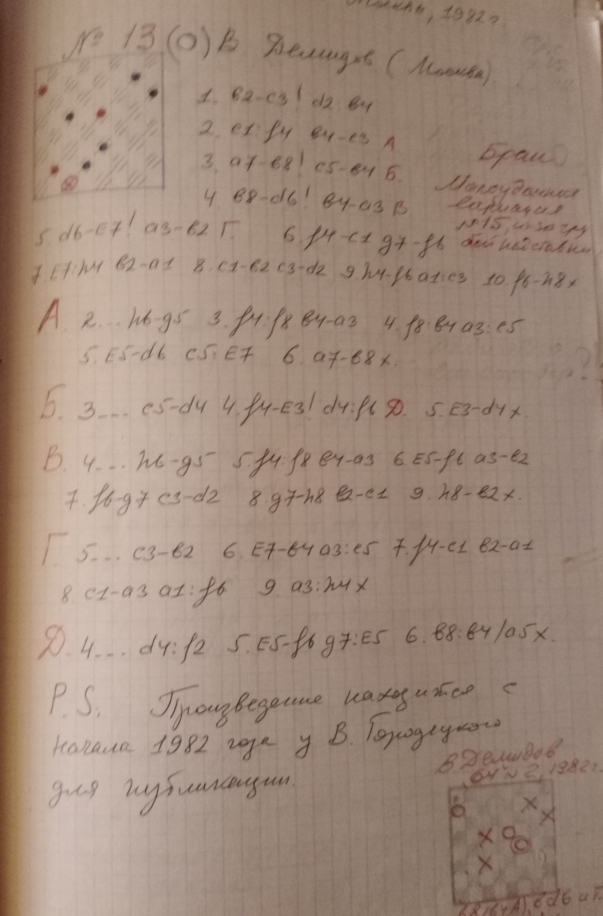 1982 г.
№ 13 (О) В. Демидов (Москва)
1. в2-с3! d2:в4
2. с1:f4 в4-с3 А
3. а7-в8! с5-в4 Б.
4. в8-d6! в4-а3 В
5. d6-E7! а3-в2 Г. 6. f4-с1 g7-f6
7. E7:h4 в2-а1 8. с1-в2 с3-d2 9. h4-f6 а1:с3 10. f6-h8х
вариация
А 2... h6-g5 3. f4:f8 в4-а3 4. f8:в4 а3:с5
5. E5-d6 с5:E7 6. а7-в8х.
Б. 3... с5-d4 4. f4-E3! d4:f6 Д. 5. E3-d4х
В. 4... h6-g5 5. f4:f8 в4-а3 6. E5-f6 а3-в2
7. f6-g7 с3-d2 8. g7-h8 в2-с1 9. h8-в2х.
Г. 5... с3-в2 6. E7-в4 а3:с5 7. f4-с1 в2-а1
8. с1-а3 а1:f6 9. а3:h4х
Д. 4... d4:f2 5. E5-f6 g7:E5 6. в8:в4/а5х.
P.S. Произведение находится с
начала 1982 года у В. Городецкого
для публикации.
В. Демидов
„64" № 2, 1982г.